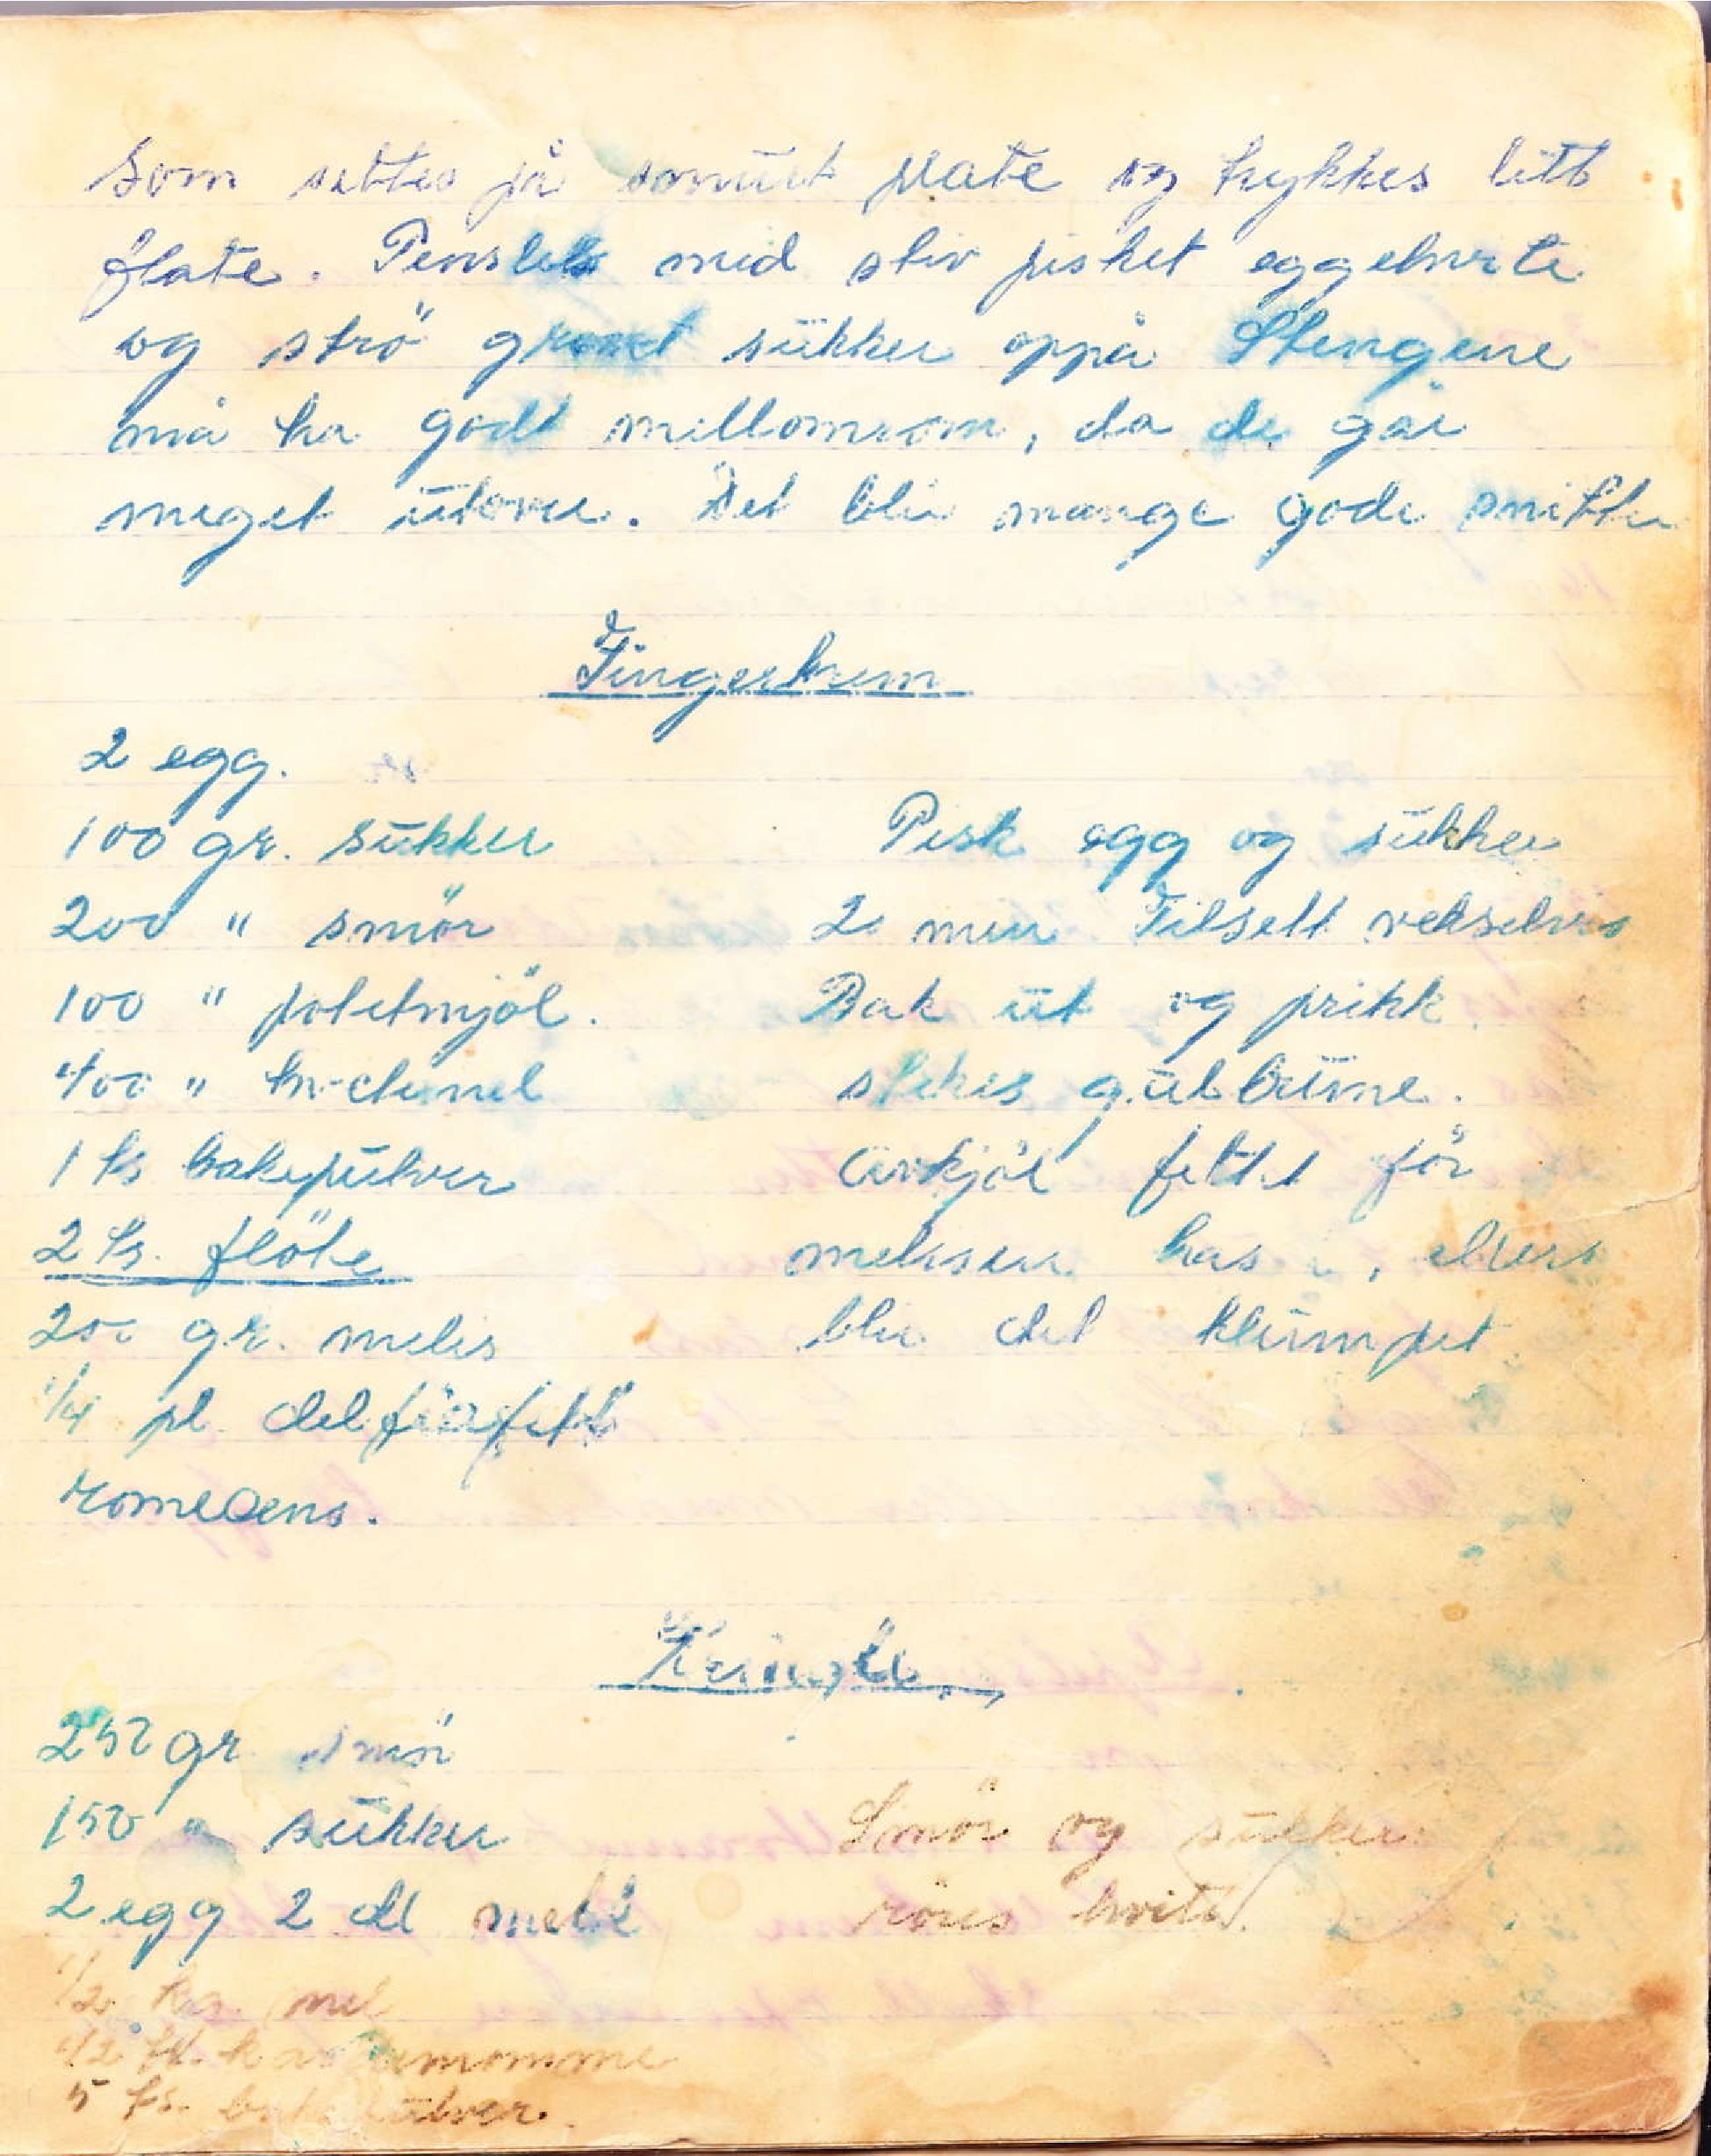 som settes på smurt plate og trykkes litt
flate. Pensles med stiv pisket eggehvite
og strö grovt sukker oppå Stengene
må ha godt mellomrom, da de går
meget utover. Det blir mange gode snitter
Fingerkrem
2 egg.
100 gr. sukker
200 " smör
100 " potetmjöl.
400 " hvetemel
1 ts bakepulver
2 ts. flöte
200 gr. melis
1/4 pl. delfiafett
romesens.
Pisk egg og sukker
2 min Tilsett vekselvis
Bak ut og prikk.
stekes gulbrune.
avkjöl fettet för
melisen has i, ellers
blir det klumpet
Kringle
250 gr smör
150 " sukker
2 egg 2 dl melk
1/2 kg. mel
1/2 ts. kardemomme
5 ts. bakepulver.
Smör og sukker
röres hvitt.